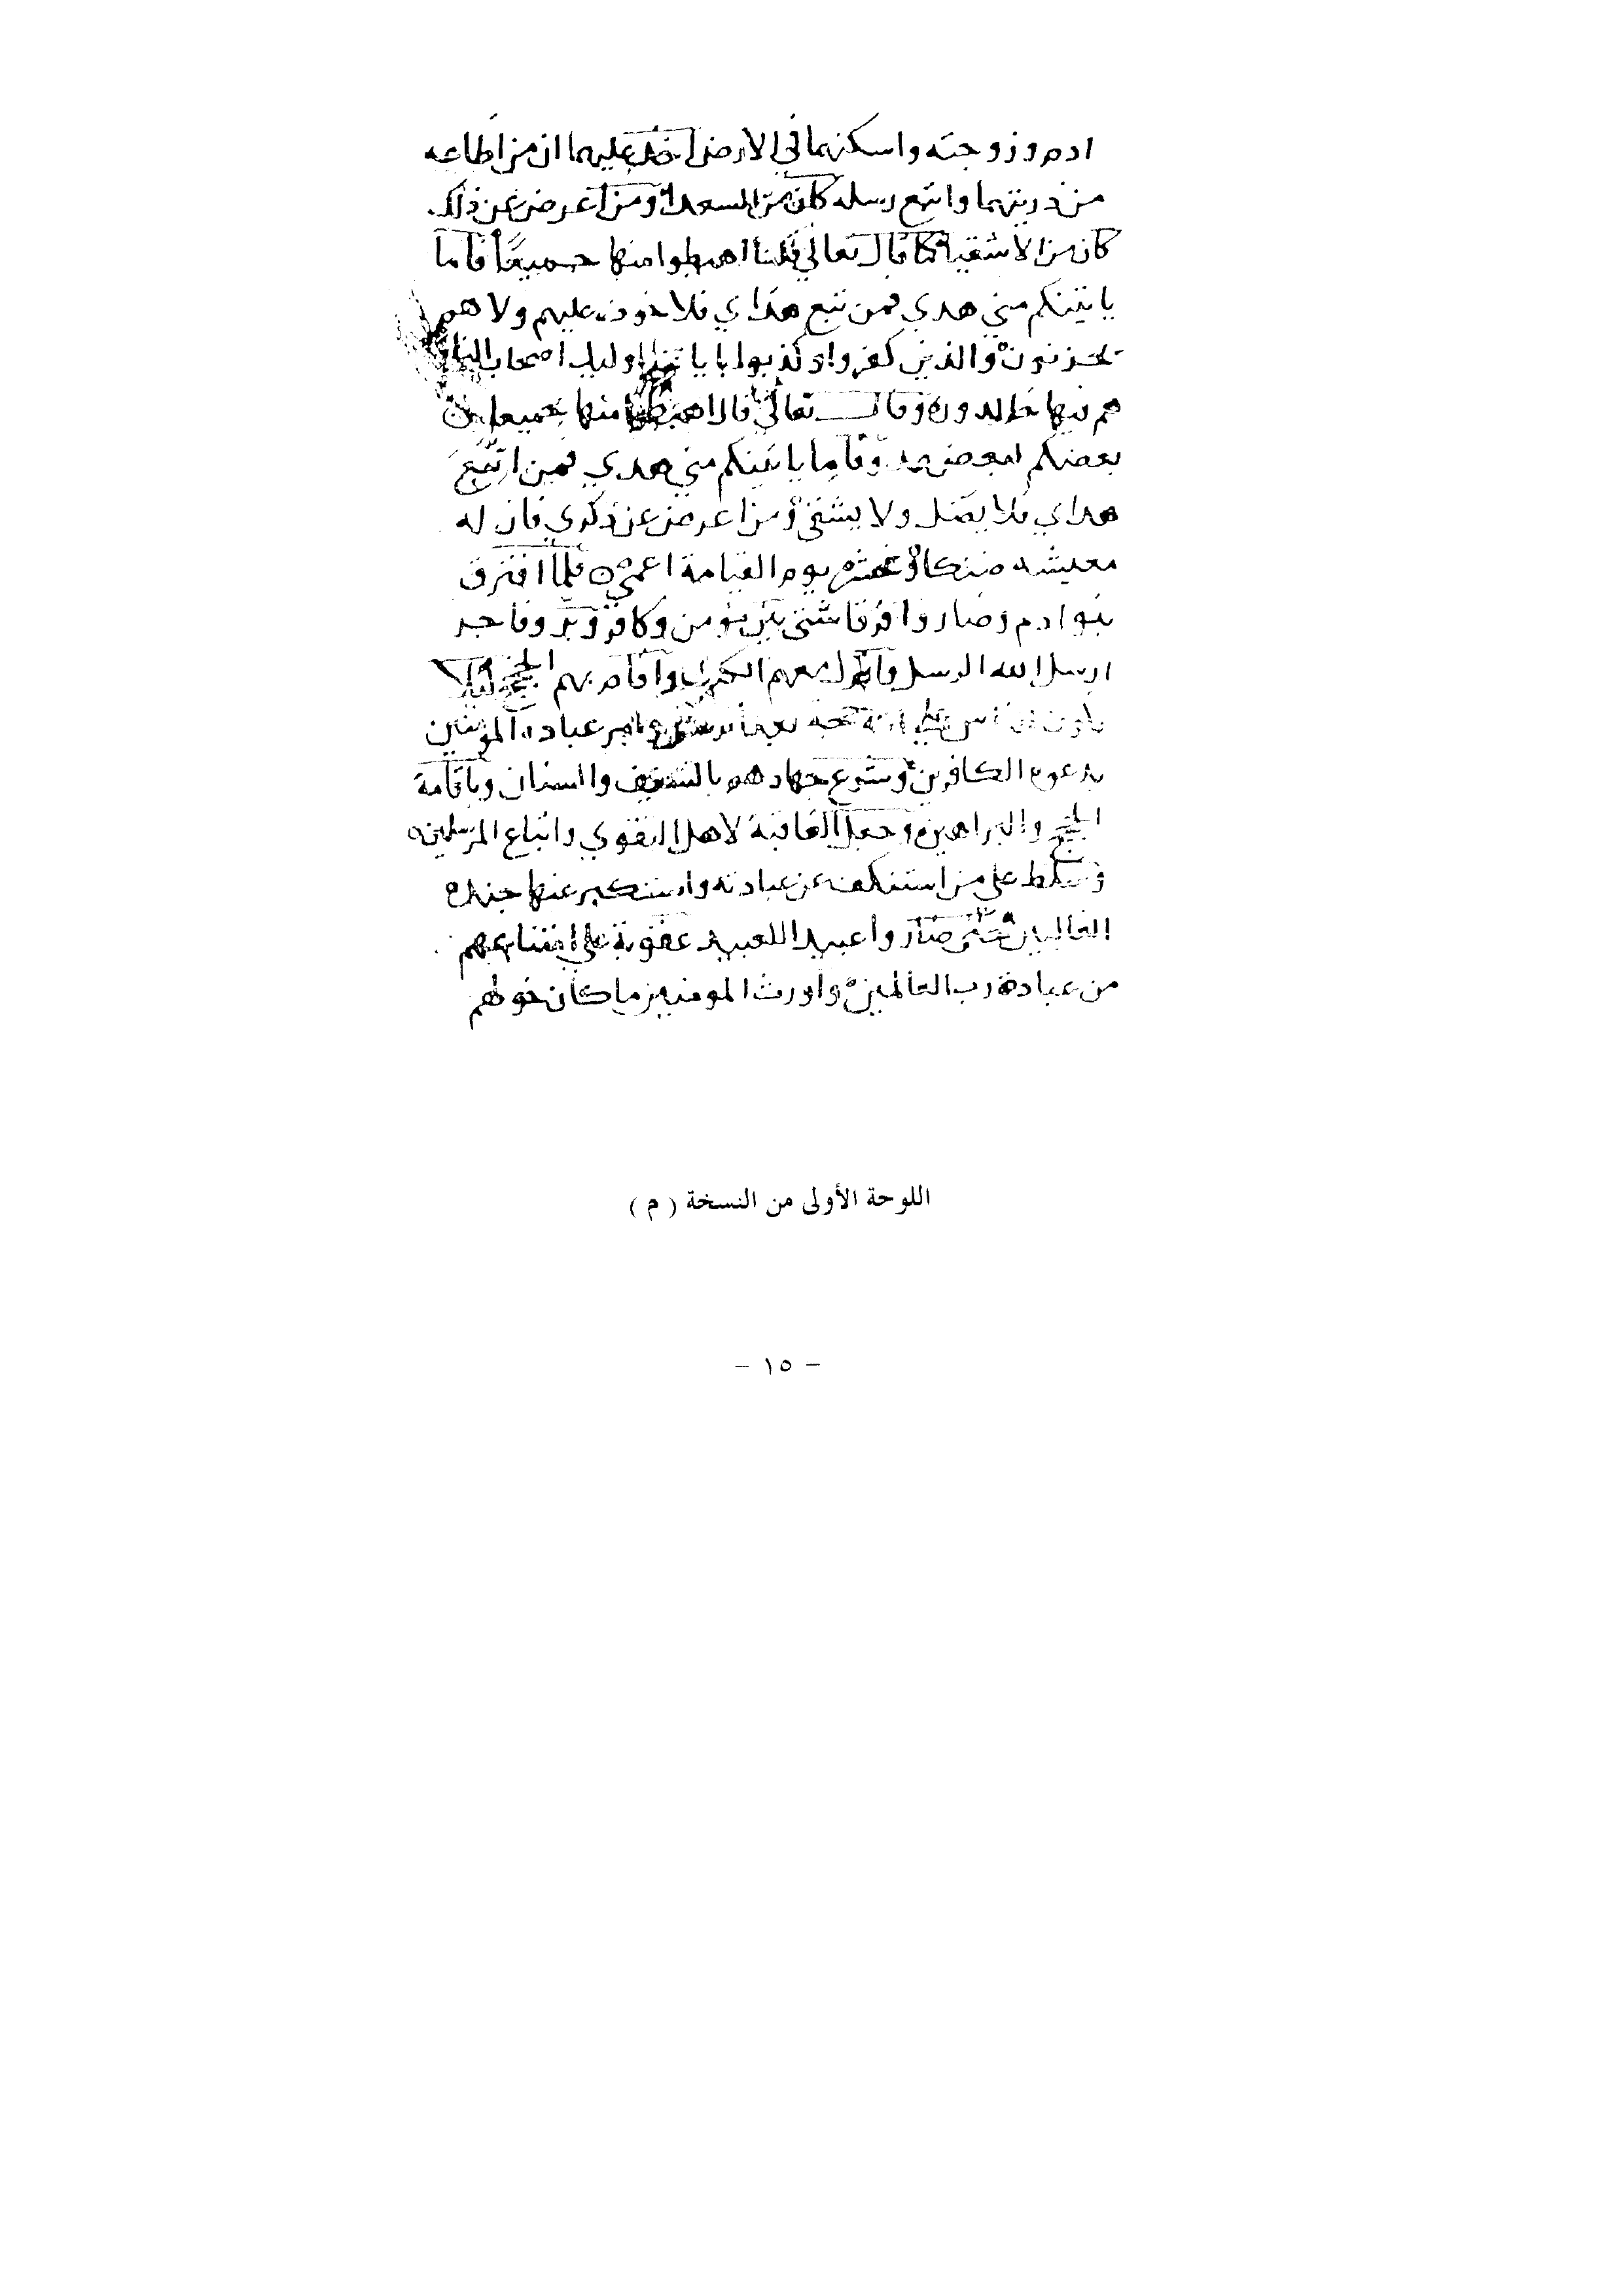 ادم وزوجته واسكنهما في الارض اخذ عليهما ان من اطاعه
من ذريتهما واتبع رسله كان من السعدا ومن اعرض عن ذلك
كان من الاشقيا كما قال تعالي قلنا اهبطوا منها جميعا فاما
ياتينكم مني هدي فمن تبع هداي فلا خوف عليهم ولا هم
يحزنون والذين كفروا وكذبوا باياتنا اوليك اصحاب النار
هم فيها خالدون وقال تعالي قال اهبطا منها جميعا
بعضكم لبعض عدو فاما ياتينكم مني هدي فمن اتبع
هداي فلا يضل ولا يشقي ومن اعرض عن ذكري فان له
معيشه ضنكا ونحشره يوم القيامة اعمي فلما افترق
بنو ادم وصاروا فرقا شتي بين مؤمن وكافر وبر وفاجر
ارسل الله الرسل وانزل معهم الكتب واقام بهم الحجج ليلا
يكون للناس علي الله حجة بعد الرسل وامر عباده المؤمنين
بدعوه الكافرين وشرع جهادهم بالسيف والسنان وباقامة
الحجج والبراهين وجعل العاقبة لاهل التقوي واتباع المرسلين
وسلط علي من استنكف عن عبادته واستكبر عنها جنده
الغالبين حتي صاروا عبيدا للعبيد عقوبة علي امتناعهم
من عبادة رب العالمين واورث المومنين ما كان خولهم
اللوحة الأولى من النسخة ( م )
- ١٥ -